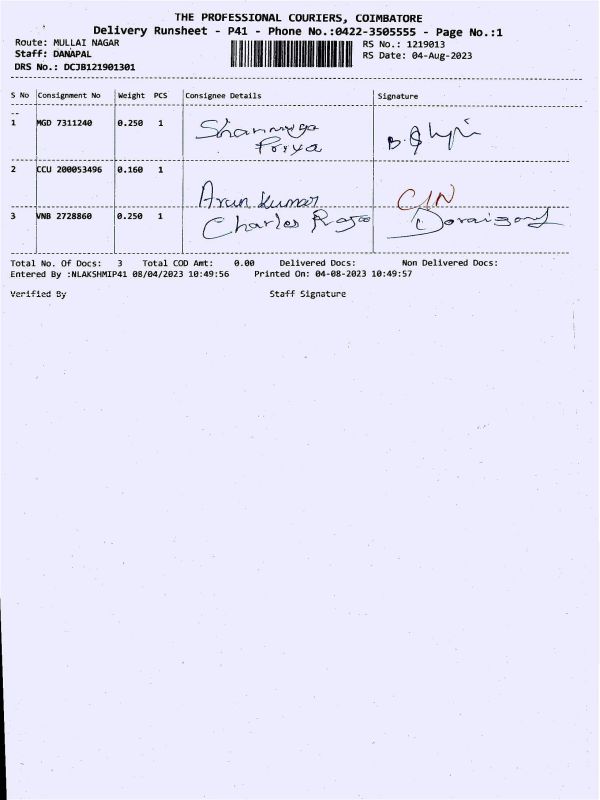 THE PROFESSIONAL COURIERS, COIMBATORE
Delivery Runsheet - P41 - Phone No.:0422-3505555 - Page No.:1
Route: MULLAI NAGAR RS No.: 1219013
Staff: DANAPAL RS Date: 04-Aug-2023
DRS No.: DCJB121901301
S No Consignment No Weight PCS Consignee Details Signature
--
1 MGD 7311240 0.250 1 Shanmuga
Priya
2 CCU 200053496 0.160 1
Arun kumar C/N
3 VNB 2728860 0.250 1 Charles Raja
Total No. Of Docs: 3 Total COD Amt: 0.00 Delivered Docs: Non Delivered Docs:
Entered By :NLAKSHMIP41 08/04/2023 10:49:56 Printed On: 04-08-2023 10:49:57
Verified By Staff Signature